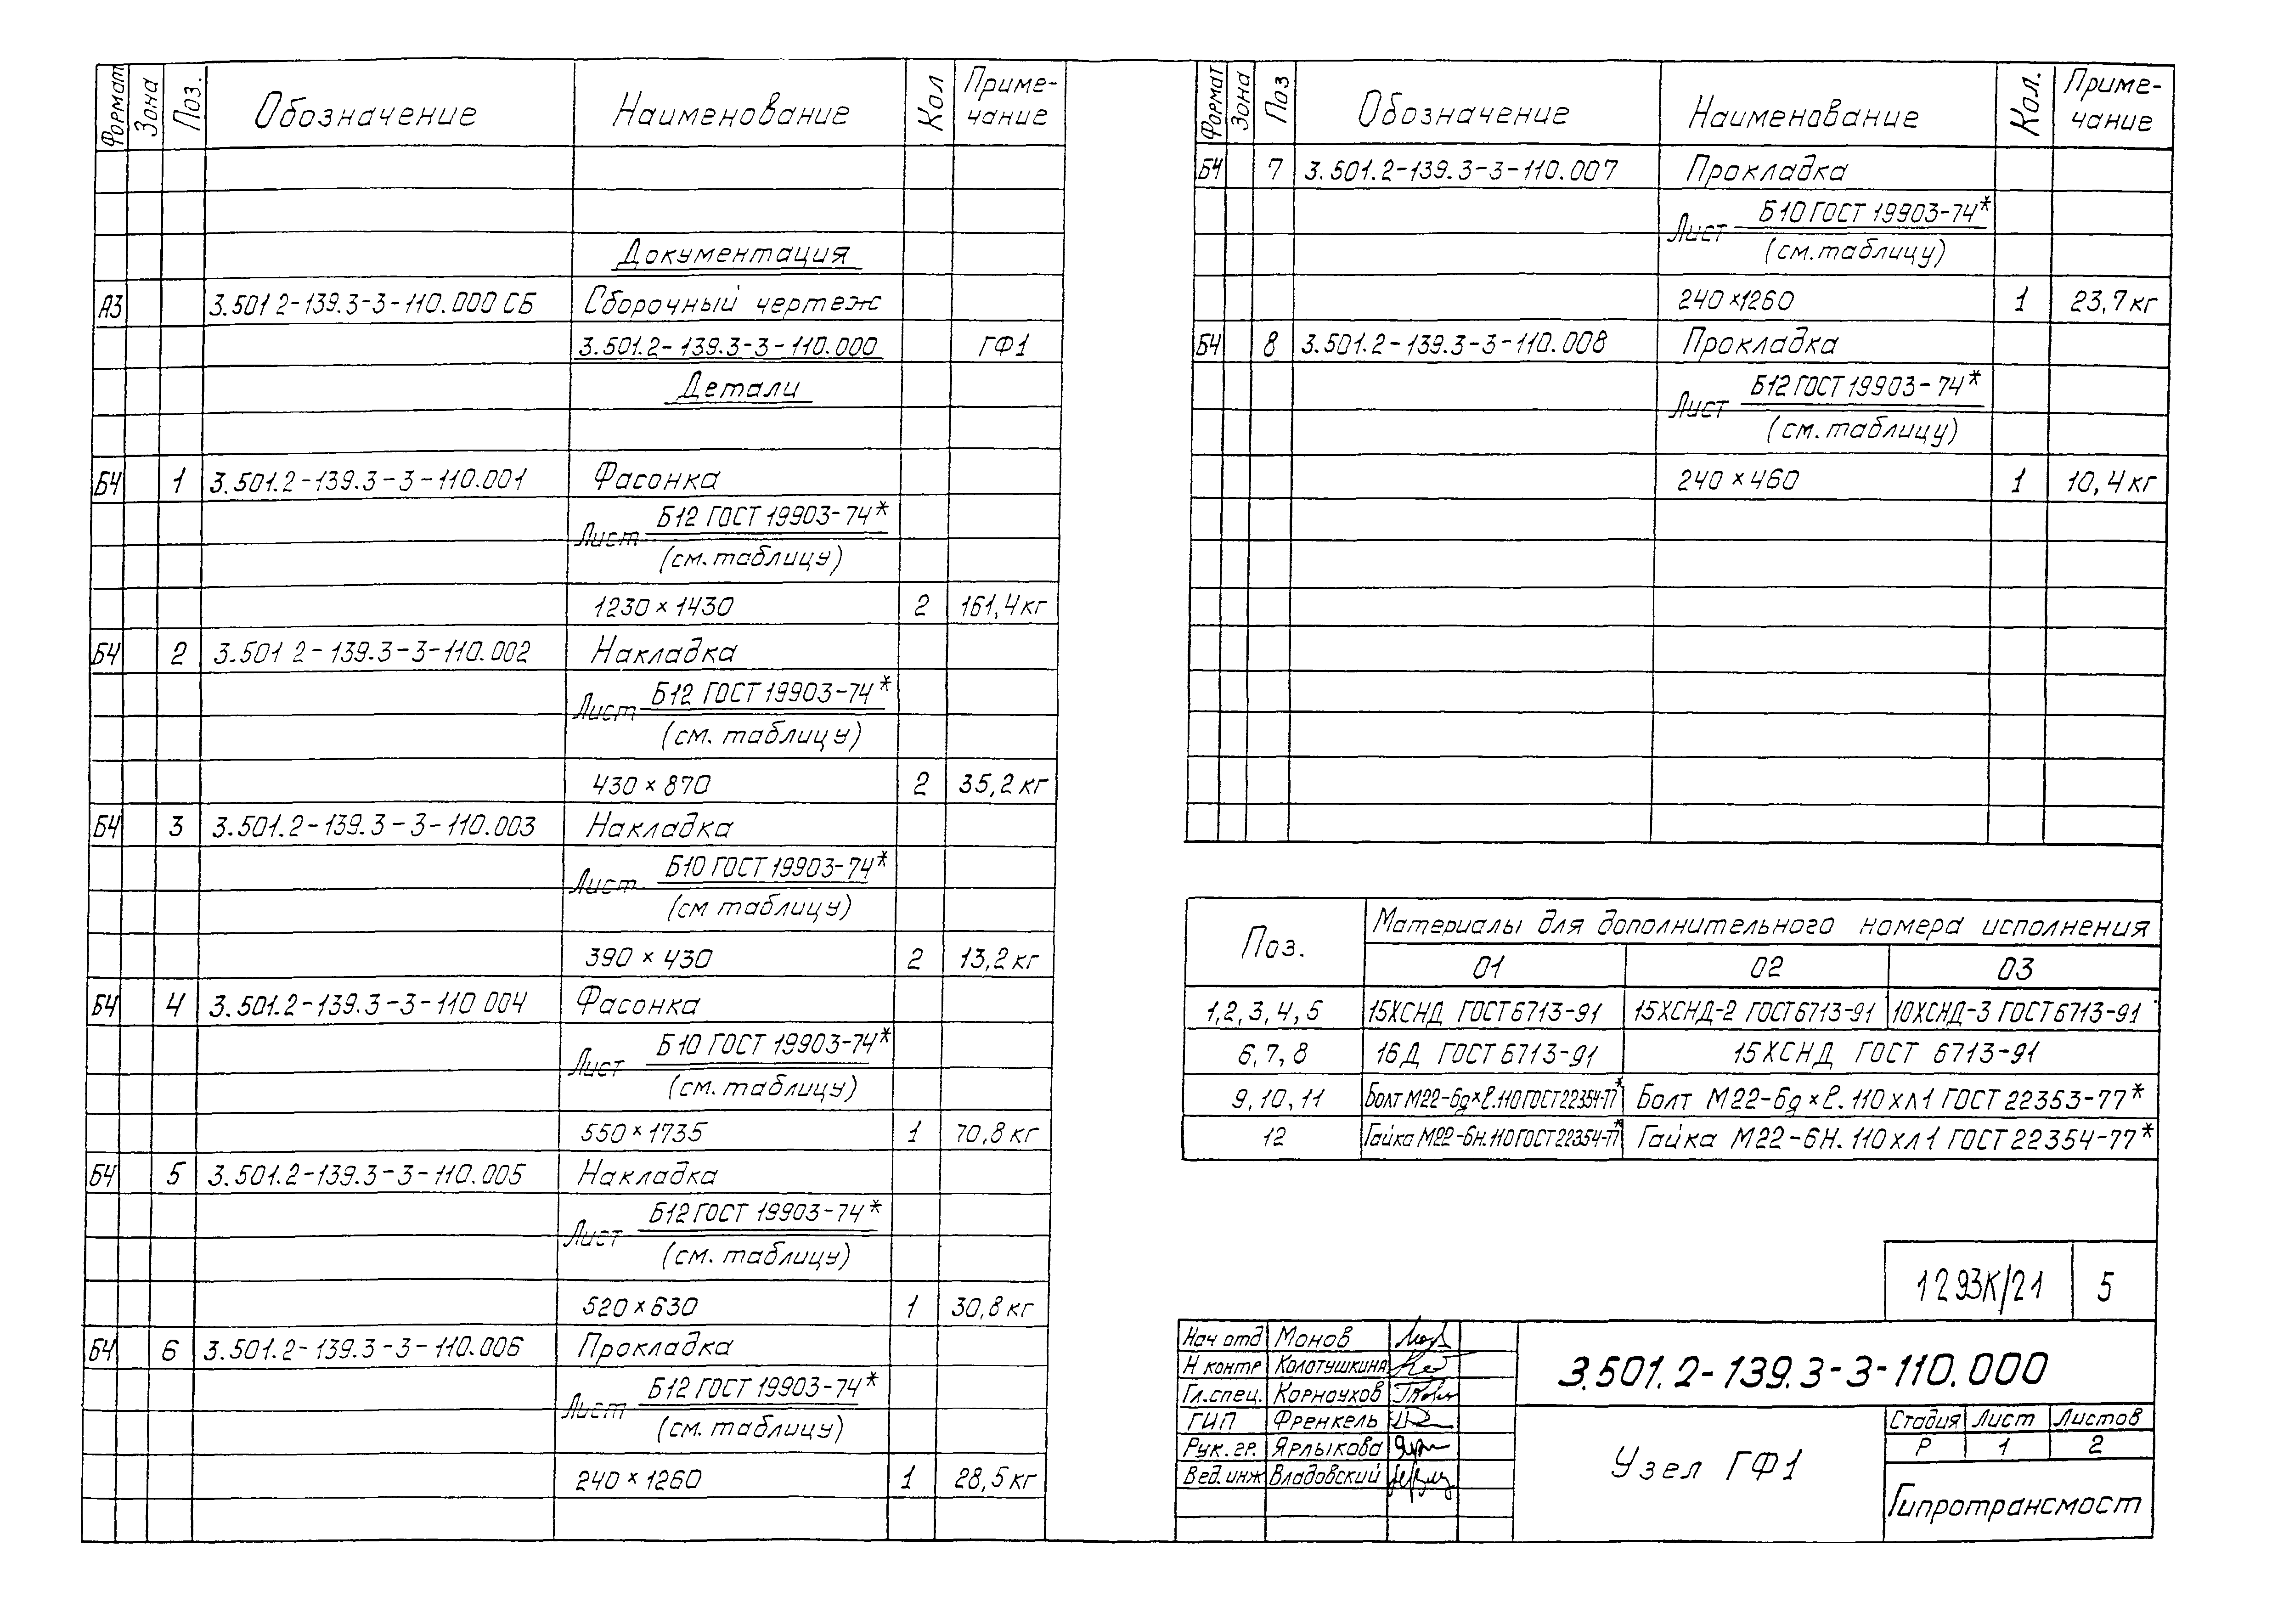 Формат Зона Поз. Обозначение Наименование Кол Приме-чание
Документация
А3 3.501 2-139.3-3-110.000 СБ Сборочный чертеж
3.501.2-139.3-3-110.000 ГФ1
Детали
БЧ 1 3.501.2-139.3-3-110.001 Фасонка
Лист Б12 ГОСТ 19903-74*
(см. таблицу)
1230 × 1430 2 161,4 кг
БЧ 2 3.501 2-139.3-3-110.002 Накладка
Лист Б12 ГОСТ 19903-74*
(см. таблицу)
430 × 870 2 35,2 кг
БЧ 3 3.501.2-139.3-3-110.003 Накладка
Лист Б10 ГОСТ 19903-74*
(см таблицу)
390 × 430 2 13,2 кг
БЧ 4 3.501.2-139.3-3-110 004 Фасонка
Лист Б10 ГОСТ 19903-74*
(см. таблицу)
550 × 1735 1 70,8 кг
БЧ 5 3.501.2-139.3-3-110.005 Накладка
Лист Б12 ГОСТ 19903-74*
(см. таблицу)
520 × 630 1 30,8 кг
БЧ 6 3.501.2-139.3-3-110.006 Прокладка
Лист Б12 ГОСТ 19903-74*
(см. таблицу)
240 × 1260 1 28,5 кг
Формат Зона Поз Обозначение Наименование Кол. Приме-чание
БЧ 7 3.501.2-139.3-3-110.007 Прокладка
Лист Б10 ГОСТ 19903-74*
(см. таблицу)
240 ×1260 1 23,7 кг
БЧ 8 3.501.2-139.3-3-110.008 Прокладка
Лист Б12 ГОСТ 19903-74*
(см. таблицу)
240 × 460 1 10,4 кг
Поз. Материалы для дополнительного номера исполнения
01 02 03
1,2,3,4,5 15ХСНД ГОСТ 6713-91 15ХСНД-2 ГОСТ 6713-91 10ХСНД-3 ГОСТ 6713-91
6,7,8 16Д ГОСТ 6713-91 15ХСНД ГОСТ 6713-91
9,10,11 Болт М22-6g×ℓ.110 ГОСТ 22354-77* Болт М22-6g×ℓ.110 хл1 ГОСТ 22353-77*
12 Гайка М22-6Н.110 ГОСТ 22354-77* Гайка М22-6Н.110 хл1 ГОСТ 22354-77*
1293К/21 5
Нач отд Монов
Н контр Колотушкина
Гл.спец. Корноухов
ГИП Френкель
Рук. гр. Ярлыкова
Вед.инж Владовский
3.501.2-139.3-3-110.000
Узел ГФ1
Стадия Лист Листов
Р 1 2
Гипротрансмост